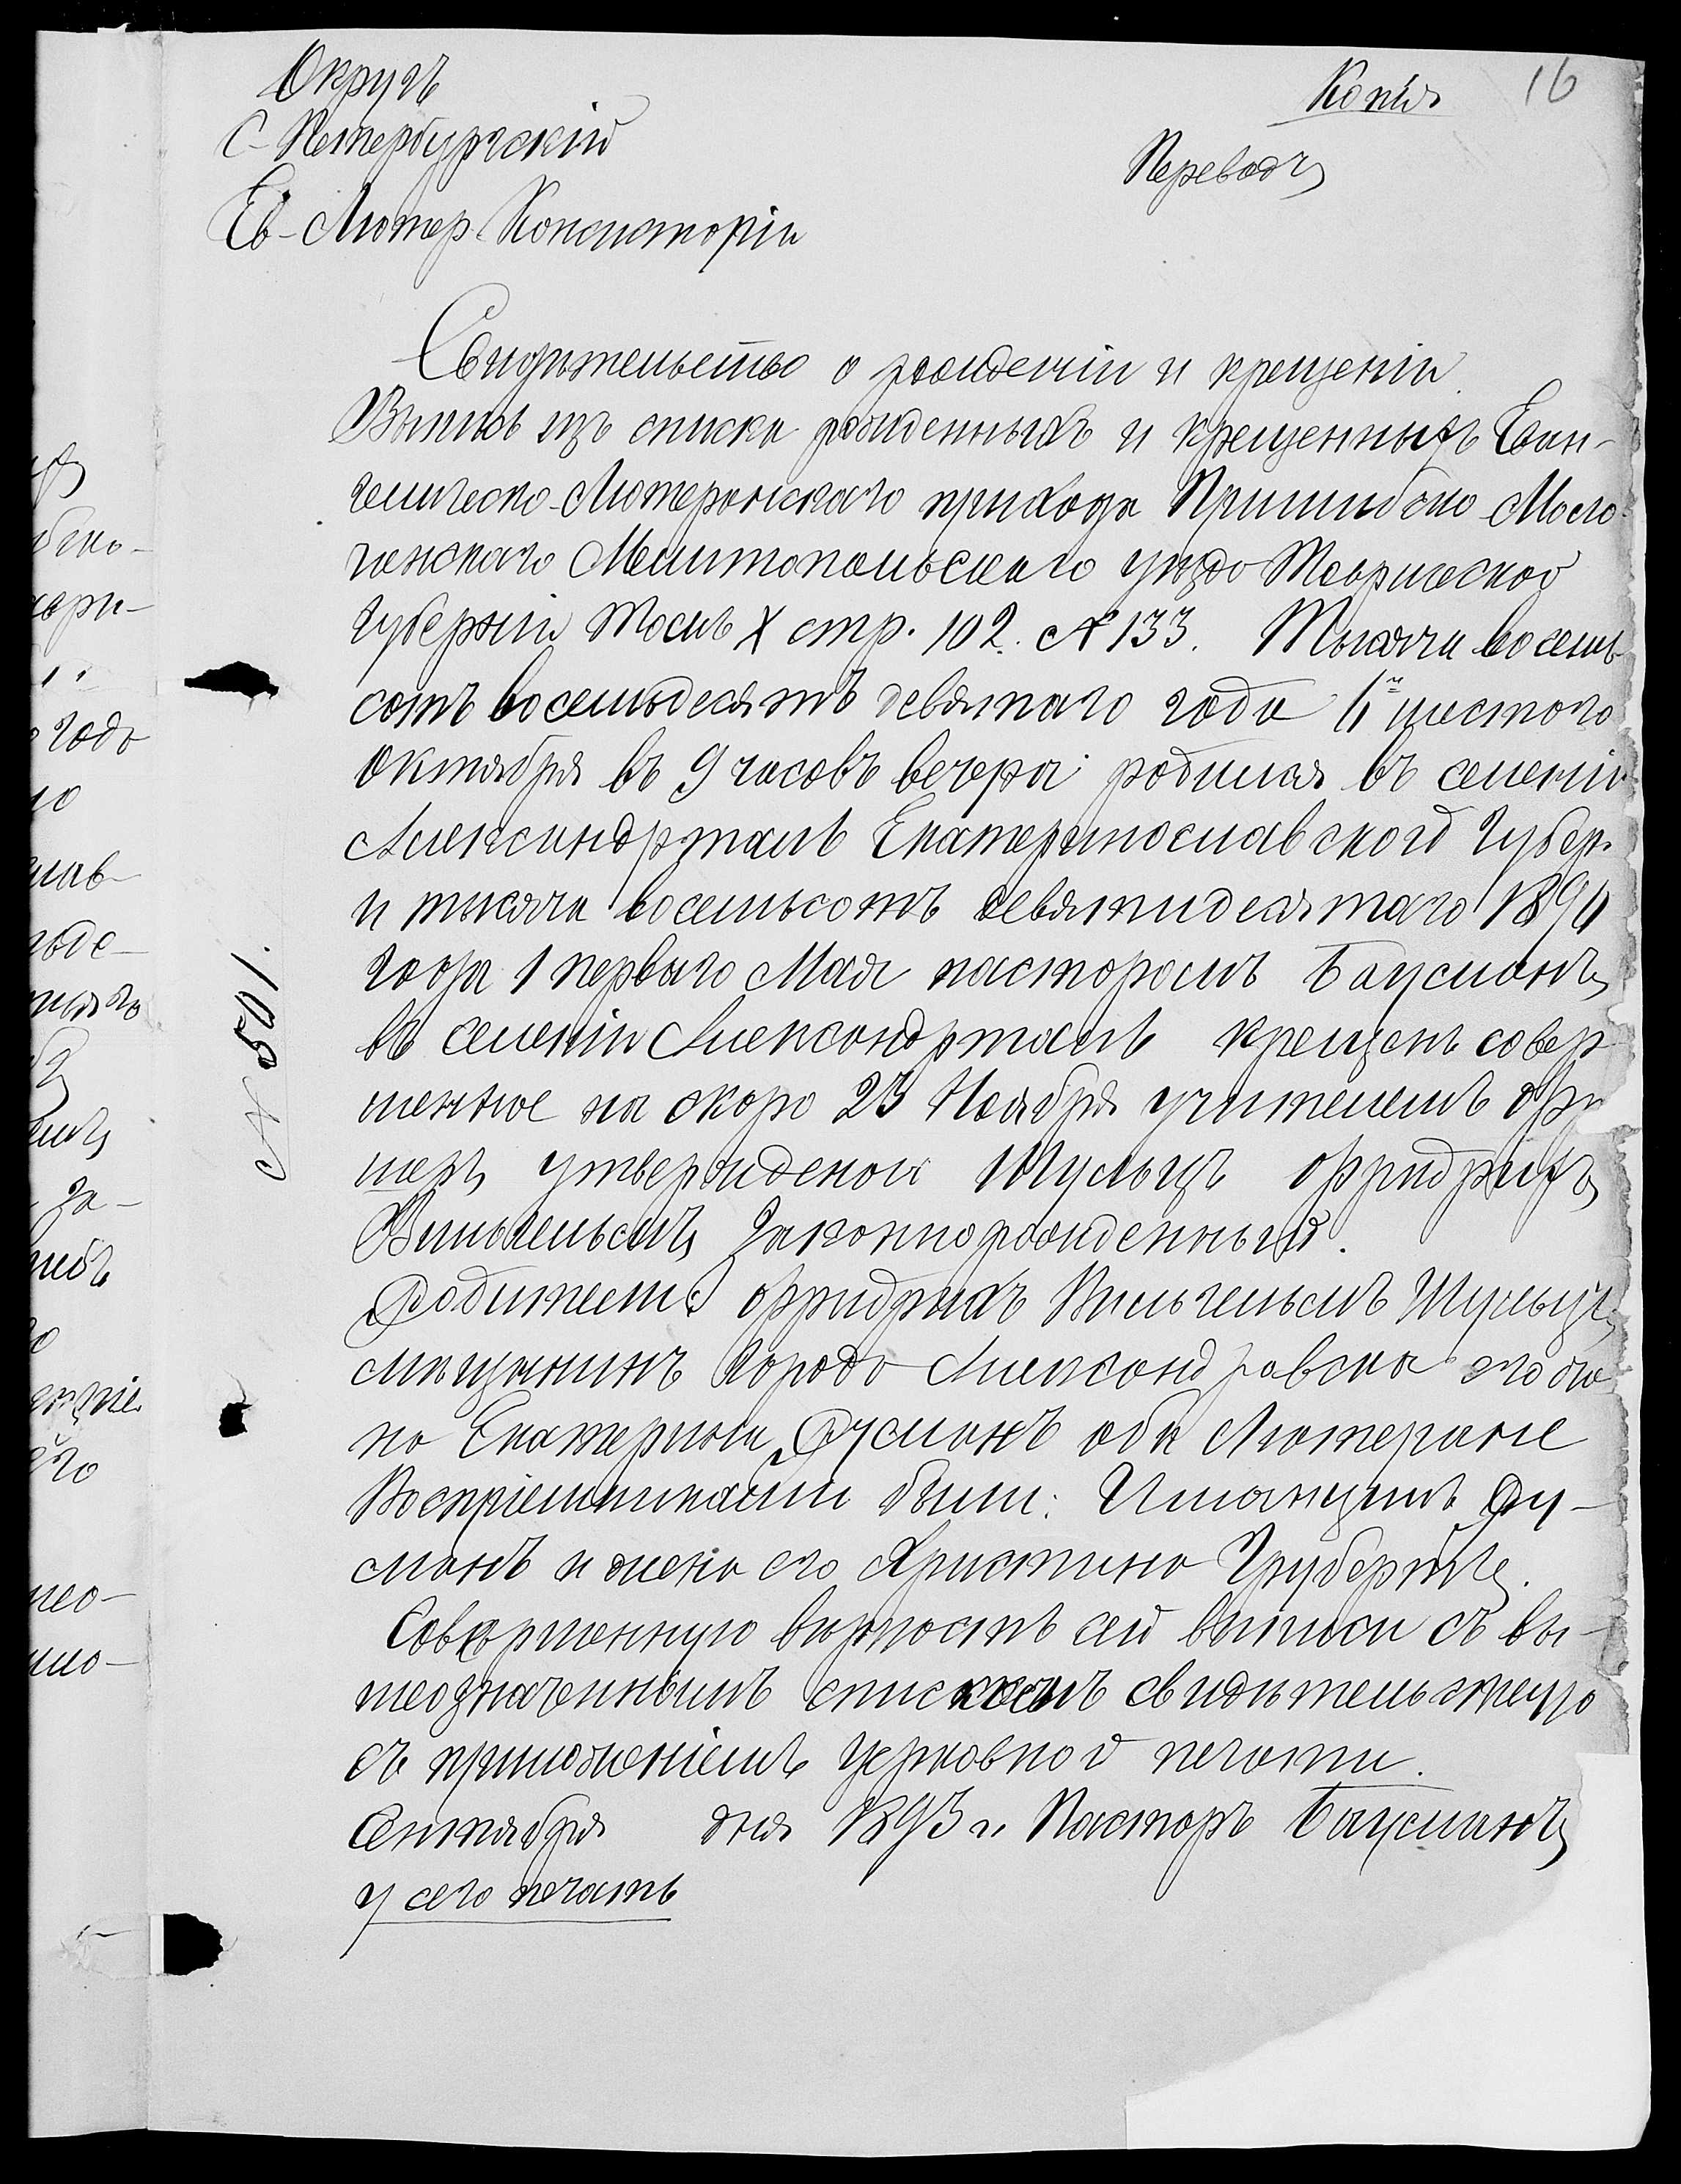 Округъ
С-Петербургскій
Ев-Лютер. Консисторіи
Копія
16
Переводъ
Свидѣтельство о рожденіи и крещеніи.
Выпись изъ списка рожденныхъ и крещенныхъ Еван-
гелическо-Лютеранскаго прихода Пришибско-Моло-
чанскаго Мелитопольскаго уѣзда Таврической
Губерніи Томъ X стр. 102. № 133. Тысяча восемь
сотъ восемьдесятъ девятаго года 6го шестого
Октября въ 9 часовъ вечера родился въ селеніи
Александрталь Екатеринославской Губер.
и тысяча восемьсотъ девятидесятаго 1890
года 1 перваго Мая пасторомъ Баусманъ
въ селеніи Александрталь крещенъ совер-
шенное на скоро 23 Ноября учителемъ
утверждено Шульцъ Фридрихъ
Вильгельмъ Законнорожденный.
Родители Фридрихъ Вильгельмъ Шульцъ
мѣщанинъ города Александровска его же-
на Екатерина Русманъ оба Лютеране
Воспріемниками были: Имануилъ Ру-
сманъ и жена его Христина
Совершенную вѣрность сей выписи съ вы-
шеозначеннымъ спискомъ свидѣтельствую
съ приложеніемъ церковной печати.
Сентября дня 1893 г. Пасторъ Баусманъ
у сего печать
№ 501.
года